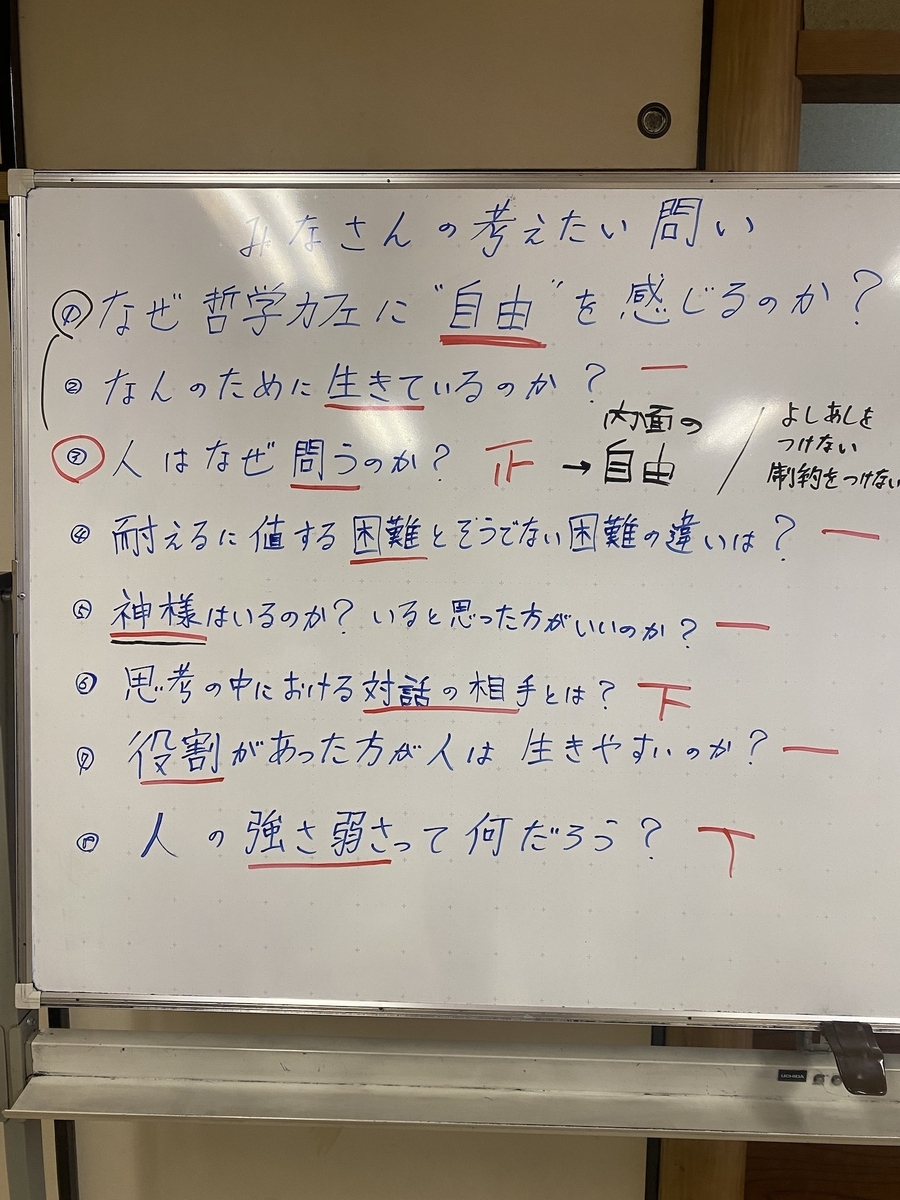 みなさんの考えたい問い
① なぜ哲学カフェに“自由”を感じるのか？
② なんのために生きているのか？ 一
③ 人はなぜ問うのか？ 正
→ 内面の
自由
よしあしを
つけない
制約をつけない
④ 耐えるに値する困難とそうでない困難の違いは？ 一
⑤ 神様はいるのか？いると思った方がいいのか？ 一
⑥ 思考の中における対話の相手とは？ 下
⑦ 役割があった方が人は生きやすいのか？ 一
⑧ 人の強さ弱さって何だろう？ 丅
UCHIDA